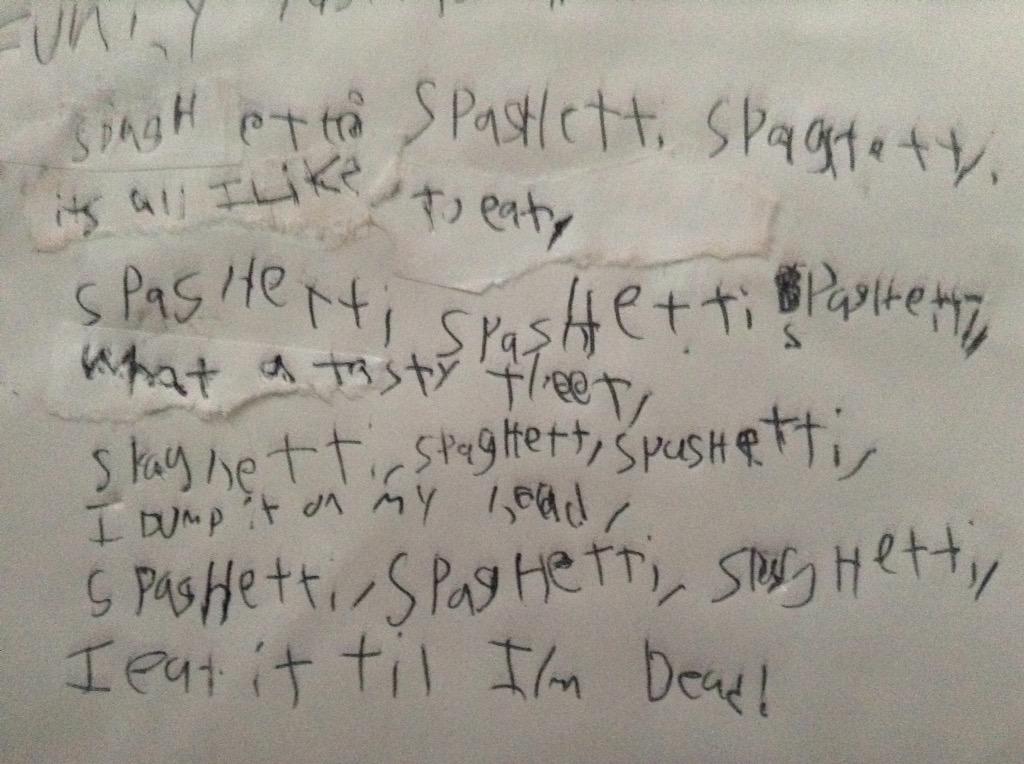 FUNI,Y
spagHetti SPagHetti SPagHetti,
its all I Like to eat,
SPagHetti, SPagHetti SPagHetti,
what a tasty treet,
spaghetti, spagHetti, spagHetti,
I DUMP it on MY head,
SPagHetti, SPagHetti, spagHetti,
I eat it til I'm Dead!